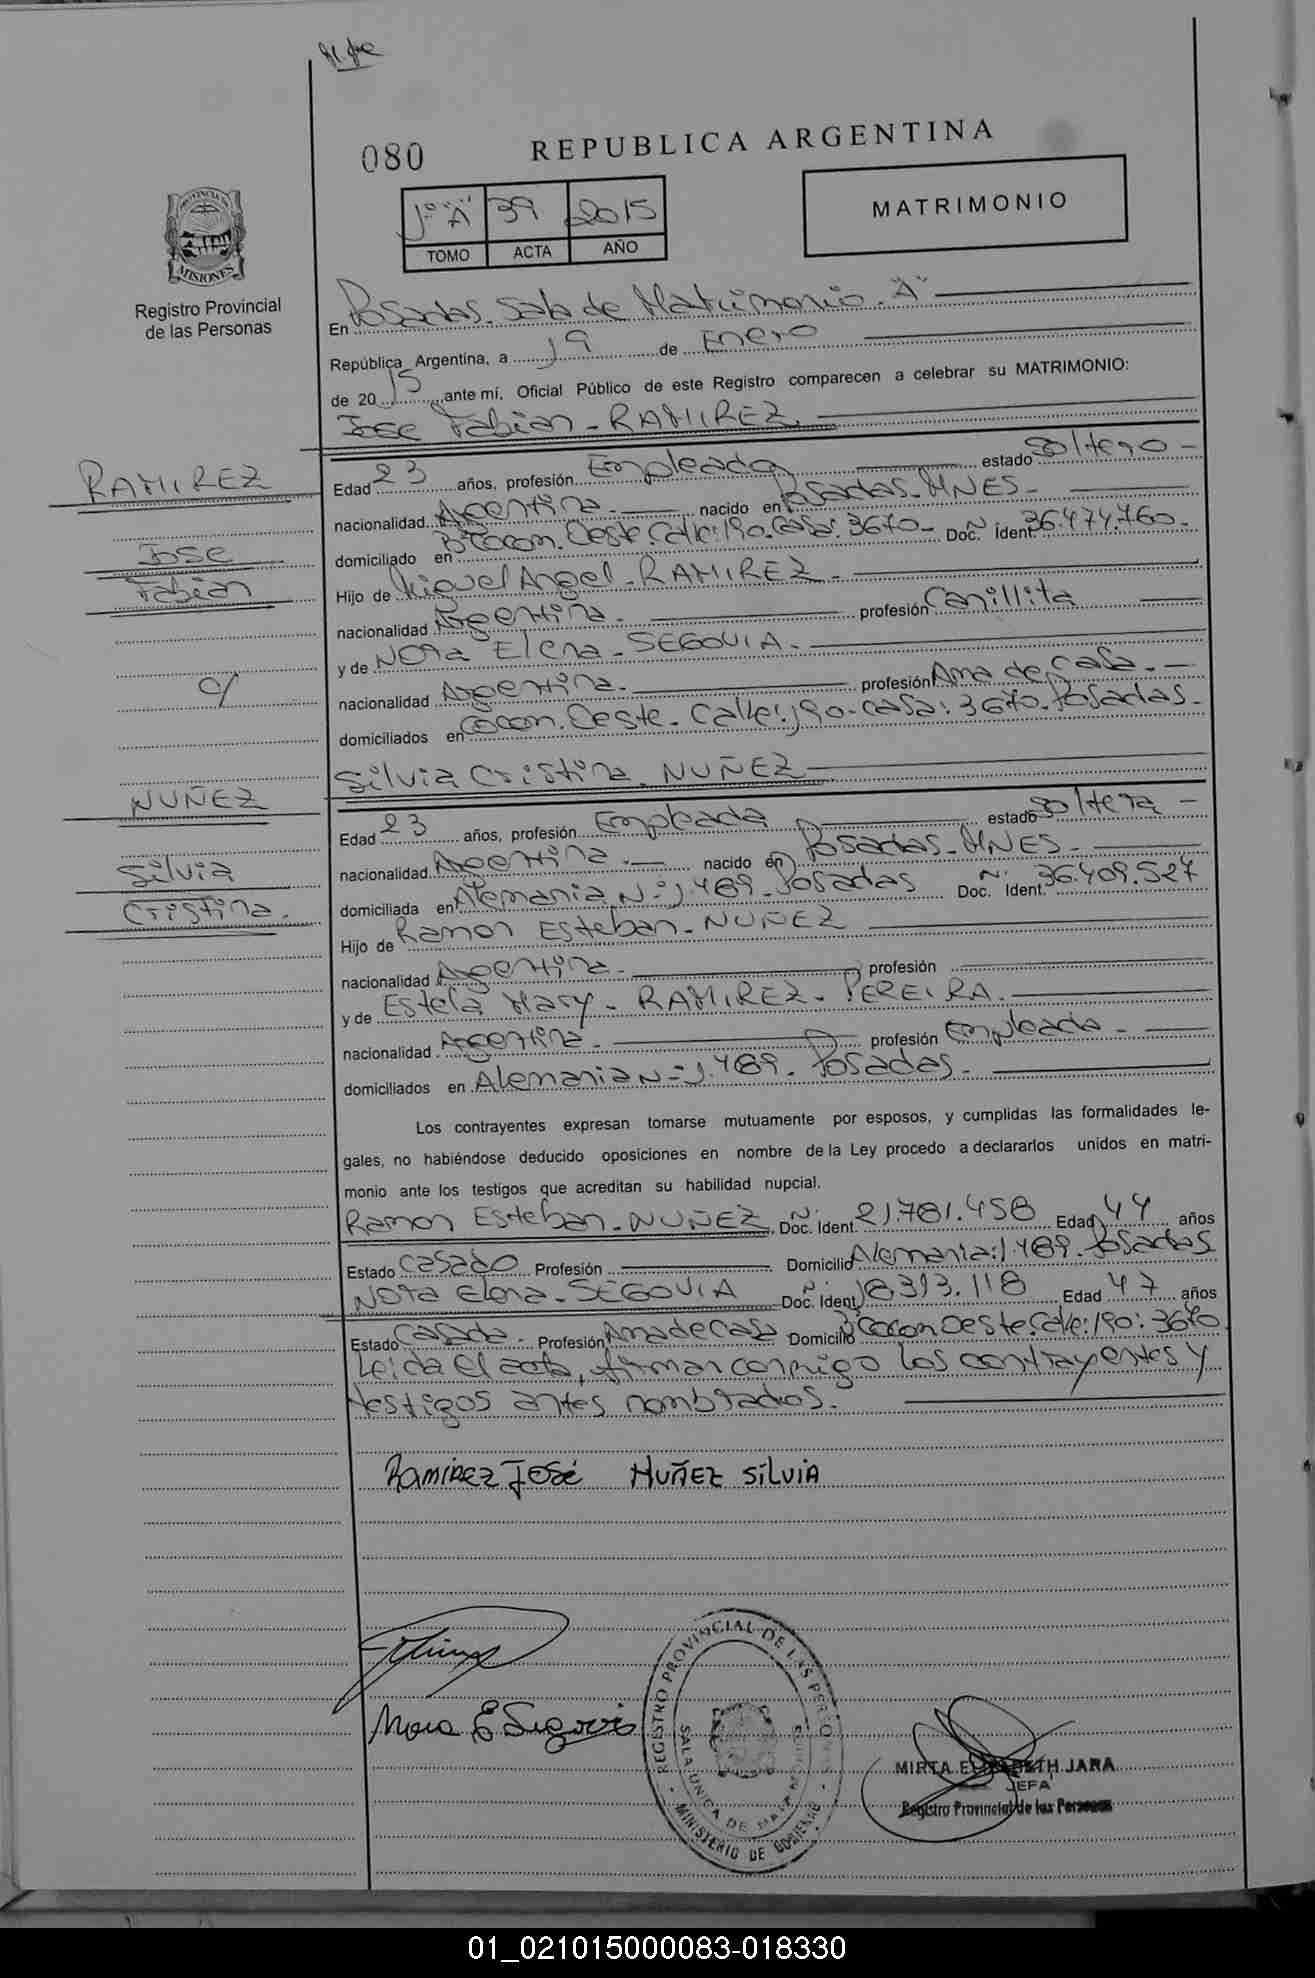 080
REPUBLICA ARGENTINA
1º "A" 39 2015
TOMO ACTA AÑO
MATRIMONIO
PROVINCIA DE MISIONES
Registro Provincial
de las Personas
En Posadas. Sala de Matrimonio. "A"
República Argentina, a 19 de Enero
de 2015 ante mí, Oficial Público de este Registro comparecen a celebrar su MATRIMONIO:
Jose Fabian - RAMIREZ.
RAMIREZ
Jose
Fabian
c/
NUÑEZ
Silvia
Cristina.
Edad 23 años, profesión Empleado estado soltero -
nacionalidad Argentina. nacido en Posadas - MNES -
domiciliado en Bº Cocom. Oeste. Calle: 190. Casa: 3670 - Doc. Nº Ident. 36.474.760 -
Hijo de Miguel Angel - RAMIREZ -
nacionalidad Argentina. profesión Canillita
y de Nora Elena - SEGOVIA.
nacionalidad Argentina. profesión Ama de Casa. -
domiciliados en Cocom. Oeste - Calle: 190 - casa: 3670. Posadas -
Silvia Cristina. NUÑEZ
Edad 23 años, profesión Empleada estado soltera -
nacionalidad Argentina. nacido en Posadas - MNES -
domiciliada en Alemania Nº: 1.489. Posadas Doc. Nº Ident. 36.409.527
Hijo de Ramon Esteban - NUÑEZ
nacionalidad Argentina. profesión
y de Estela Mary - RAMIREZ - PEREIRA.
nacionalidad Argentina. profesión Empleada -
domiciliados en Alemania Nº: 1.489. Posadas.
Los contrayentes expresan tomarse mutuamente por esposos, y cumplidas las formalidades le-
gales, no habiéndose deducido oposiciones en nombre de la Ley procedo a declararlos unidos en matri-
monio ante los testigos que acreditan su habilidad nupcial.
Ramon Esteban - NUÑEZ. Doc. Nº Ident. 21.781.458 Edad 44 años
Estado casado Profesión Domicilio Alemania: 1.489. Posadas
Nora Elena - SEGOVIA Doc. Nº Ident. 18.313.118 Edad 47 años
Estado Casada. Profesión Ama de Casa Domicilio Bº Cocom Oeste. Calle: 190: 3670
Leida el acta, firman conmigo los contrayentes y
testigos antes nombrados.
RAMIREZ JOSÉ NUÑEZ SILVIA
Nora E Segovia
REGISTRO PROVINCIAL DE LAS PERSONAS
SALA UNICA DE MATRIMONIOS
MINISTERIO DE GOBIERNO
MIRTA ELIZABETH JARA
JEFA
Registro Provincial de las Personas
01_021015000083-018330